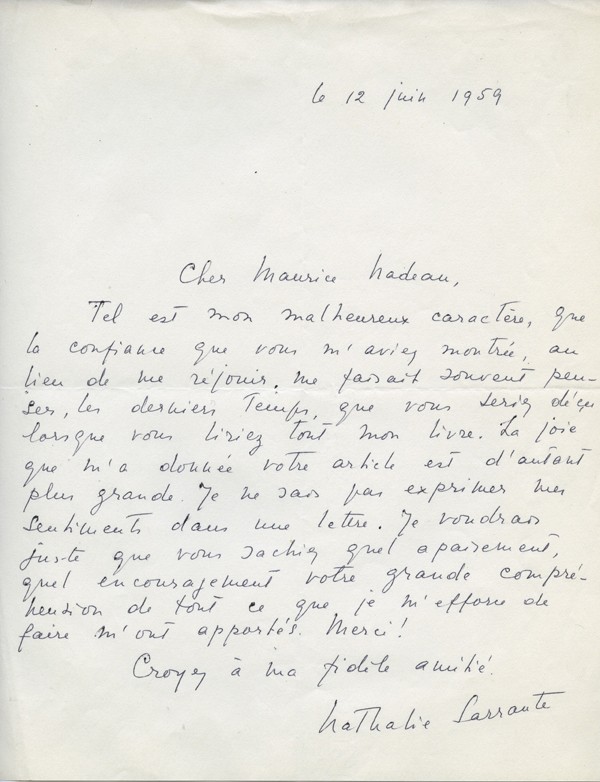 le 12 juin 1959
Cher Maurice Nadeau,
Tel est mon malheureux caractère, que
la confiance que vous m'aviez montrée, au
lieu de me réjouir, me faisait souvent pen-
ser, les derniers temps, que vous seriez déçu
lorsque vous liriez tout mon livre. La joie
que m'a donnée votre article est d'autant
plus grande. Je ne sais pas exprimer mes
sentiments dans une lettre. Je voudrais
juste que vous sachiez quel apaisement,
quel encouragement votre grande compré-
hension de tout ce que je m'efforce de
faire m'ont apportés. Merci!
Croyez à ma fidèle amitié.
Nathalie Sarraute